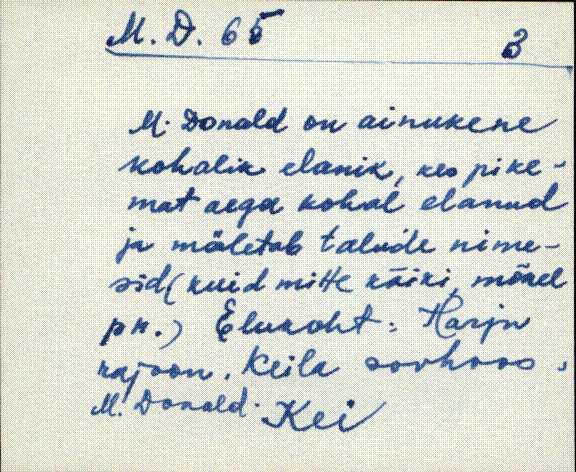 M. D. 65 3
M. Donald on ainukene
kohalik elanik, kes pike-
mat aega kohal elanud
ja mäletab talude nime-
sid (kuid mitte kõiki, mõnel
pn.) Elukoht: Harju
rajoon. Keila sovhoos.
M. Donald. Kei